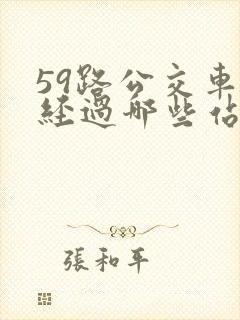 59路公交車
經過哪些佔
張和平